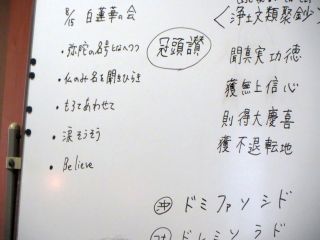 8/15 白蓮華の会
・弥陀の名号となへつつ
・仏のみ名を聞きひらき
・もろてあわせて
・涙そうそう
・Believe
冠頭讃
〈浄土文類聚鈔〉
聞真実功徳
獲無上信心
則得大慶喜
獲不退転地
沖 ドミファソシド